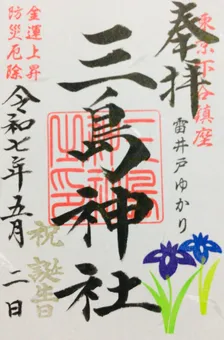 東京下谷鎮座
奉拝
雷井戸ゆかり
三島神社
金運上昇
防災厄除
令和七年五月二日
祝誕生日